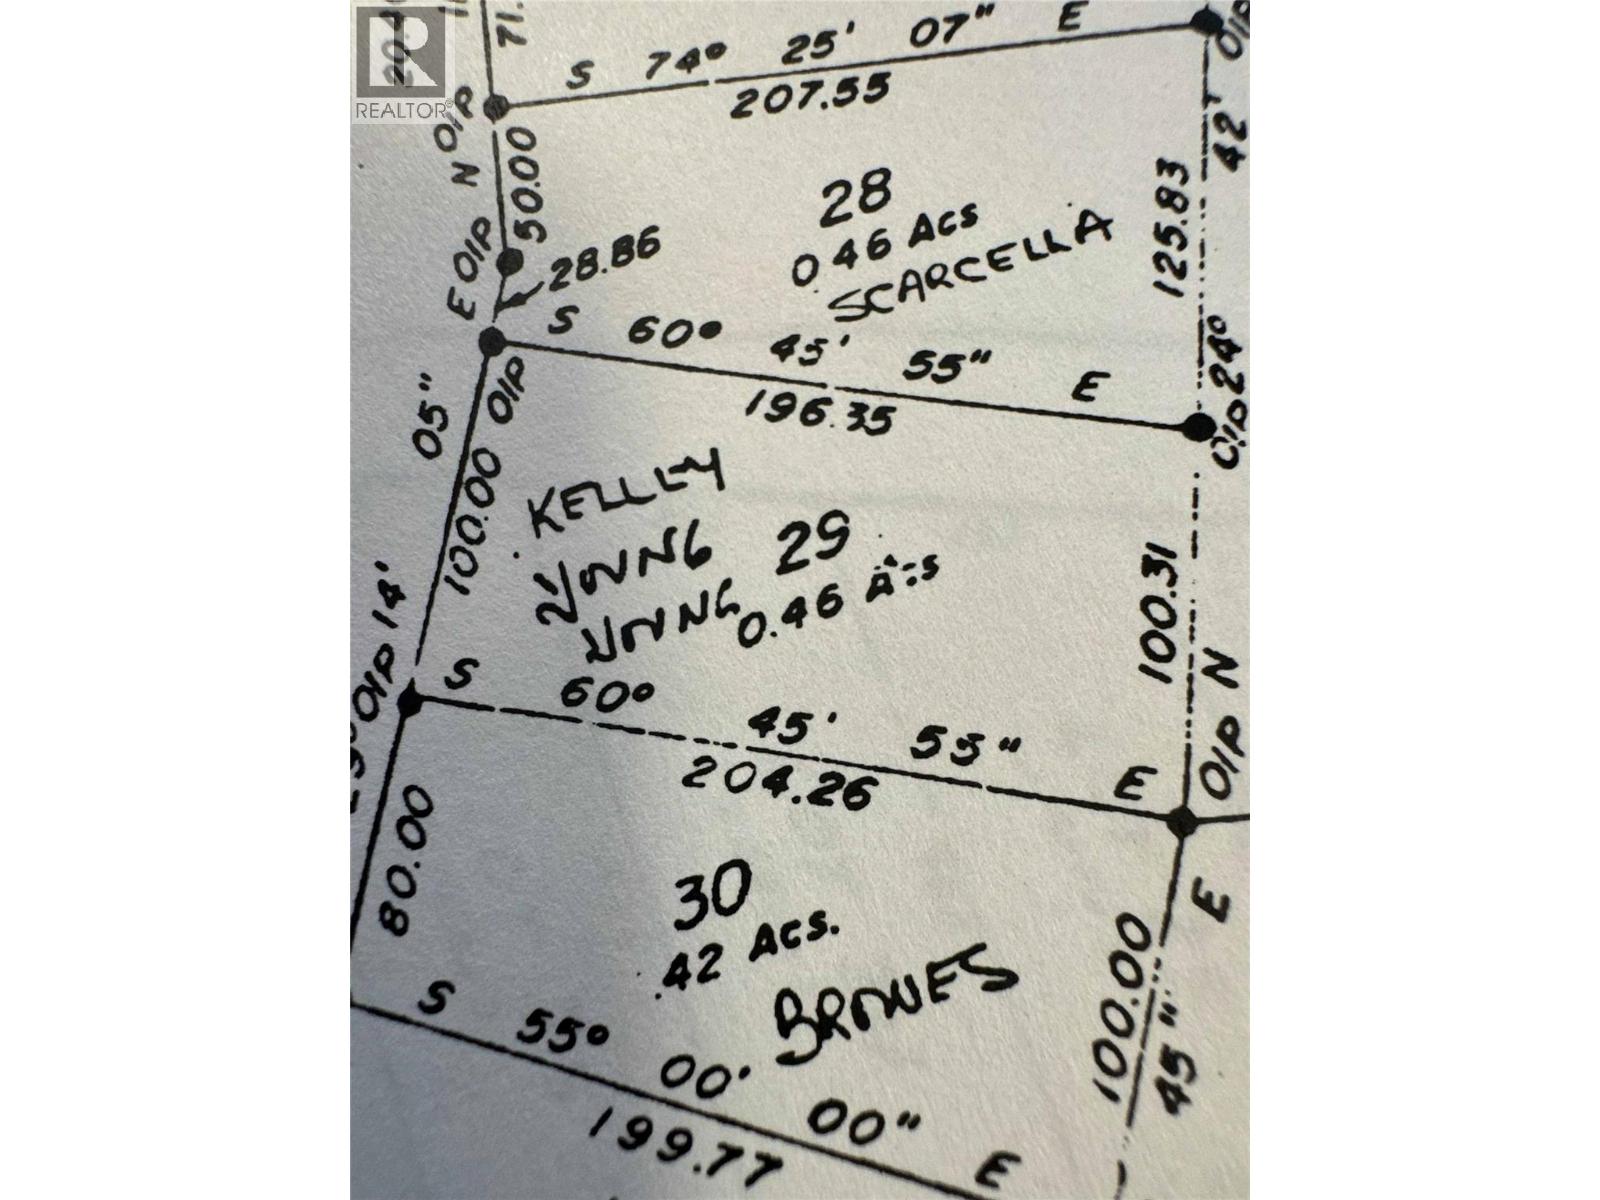 R
REALTOR®
71.
S 74° 25' 07" E
207.55
O/P
50.00
E O/P N
28.86
28
0.46 Acs
SCARCELLA
125.83
42'
S 60° 45' 55" E
196.35
O/P 24°
05"
100.00 O/P
KELLEY
YOUNG
YOUNG
29
0.46 Acs
100.31
O/P 14'
S 60° 45' 55" E
204.26
O/P N
E
80.00
30
.42 Acs.
BROWES
100.00
45"
S 55° 00' 00" E
199.77